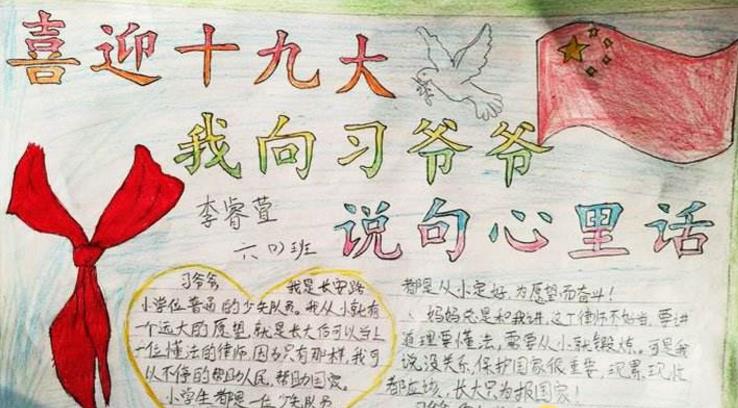 喜迎十九大
我向习爷爷
说句心里话
李睿萱
六(1)班
习爷爷 我是长安路
小学位普通的少先队员。我从小就有
一个远大的愿望,就是长大后可以当上
一位懂法的律师,因为只有那样,我可
以不停的帮助人民,帮助国家。
小学生都是一位少先队员
都是从小定好,为愿望而奋斗!
妈妈总是和我讲,这个律师不好当,要讲
道理要懂法,需要从小就锻炼。可是我
说没关系,保护国家很重要,现累
都应该,长大只为报国家!